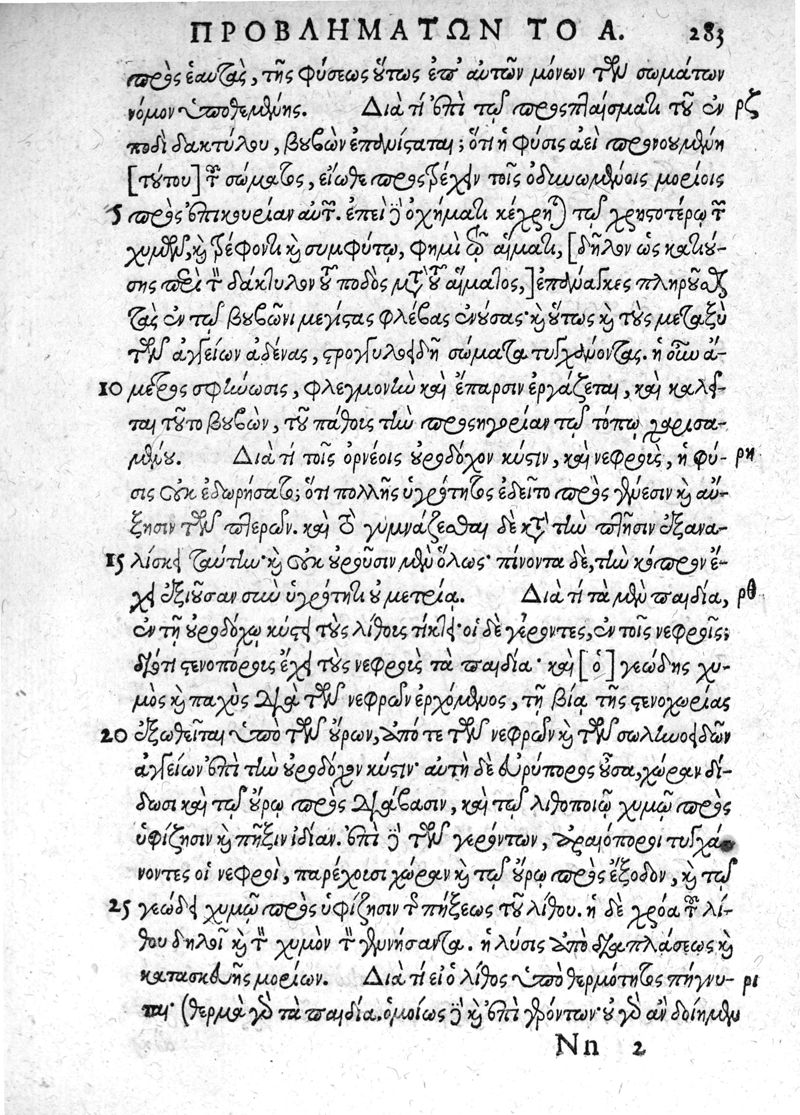 ΠΡΟΒΛΗΜΑΤΩΝ ΤΟ Α. 283
πρὸς ἑαυτὰς, τῆς φύσεως οὕτως ἐπ' αὐτῶν μόνων τῶν σωμάτων
νόμον ὑποθεμένης. Διὰ τί ἐπὶ τῷ προσπλαίσματι τοῦ ἐν ρζ
ποδὶ δακτύλου, βουβὼν ἐπανίσταται; ὅτι ἡ φύσις ἀεὶ προνουμένη
[τούτου] τοῦ σώματος, εἴωθε προστρέχειν τοῖς ὀδυνωμένοις μορίοις
5 πρὸς ἐπικουρίαν αὐτῶν. ἐπεὶ δὲ ὀχήματι κέχρηται τῷ χρηστοτέρῳ τῶν
χυμῶν, καὶ τρέφοντι καὶ συμφύτῳ, φημὶ τῷ αἵματι, [δῆλον ὡς κατιού-
σης περὶ τὸν δάκτυλον τοῦ ποδὸς μετὰ τοῦ αἵματος,] ἐπανάγκες πληροῦσθαι
τὰς ἐν τῷ βουβῶνι μεγίστας φλέβας ἐνούσας· καὶ οὕτως καὶ τοὺς μεταξὺ
τῶν ἀγγείων ἀδένας, στρογγυλοειδῆ σώματα τυγχάνοντας. ἡ οὖν ἄ-
10 μετρος σφήνωσις, φλεγμονὴν καὶ ἔπαρσιν ἐργάζεται, καὶ καλεῖ-
ται τοῦτο βουβὼν, τοῦ πάθους τὴν προσηγορίαν τῷ τόπῳ χαρισα-
μένου. Διὰ τί τοῖς ὀρνέοις οὐροδόχον κύστιν, καὶ νεφροὺς, ἡ φύ- ρη
σις οὐκ ἐδωρήσατο; ὅτι πολλῆς ὑγρότητος ἐδεῖτο πρὸς γένεσιν καὶ αὔ-
ξησιν τῶν πτερῶν. καὶ τὸ γυμνάζεσθαι δὲ κατὰ τὴν πτῆσιν ἐξανα-
15 λίσκει ταύτην· καὶ οὐκ οὐροῦσιν μὲν ὅλως· πίνοντα δὲ, τὴν κόπρον ἔ-
χει ἐξιοῦσαν σὺν ὑγρότητι οὐ μετρίᾳ. Διὰ τί τὰ μὲν παιδία, ρθ
ἐν τῇ οὐροδόχῳ κύστει τοὺς λίθους τίκτει· οἱ δὲ γέροντες, ἐν τοῖς νεφροῖς;
διότι στενοπόρους ἔχει τοὺς νεφροὺς τὰ παιδία· καὶ [ὁ] γεώδης χυ-
μὸς καὶ παχὺς διὰ τῶν νεφρῶν ἐρχόμενος, τῇ βίᾳ τῆς στενοχωρίας
20 ἐξωθεῖται ὑπὸ τῶν οὔρων, ἀπό τε τῶν νεφρῶν καὶ τῶν σωληνοειδῶν
ἀγγείων ἐπὶ τὴν οὐροδόχον κύστιν· αὐτὴ δὲ εὐρύπορος οὖσα, χώραν δί-
δωσι καὶ τῷ οὔρῳ πρὸς διάβασιν, καὶ τῷ λιθοποιῷ χυμῷ πρὸς
ὑφίζησιν καὶ πῆξιν ἰδίαν. ἐπὶ δὲ τῶν γερόντων, ἀραιόποροι τυγχά-
νοντες οἱ νεφροὶ, παρέχουσι χώραν καὶ τῷ οὔρῳ πρὸς ἔξοδον, καὶ τῷ
25 γεώδει χυμῷ πρὸς ὑφίζησιν τῆς πήξεως τοῦ λίθου. ἡ δὲ χρόα τοῦ λί-
θου δηλοῖ καὶ τὸν χυμὸν τὸν γεννήσαντα. ἡ λύσις ἀπὸ διαπλάσεως καὶ
κατασκευῆς μορίων. Διὰ τί εἰ ὁ λίθος ὑπὸ θερμότητος πήγνυ- ρι
ται· (θερμὰ γὰρ τὰ παιδία. ὁμοίως δὲ καὶ ἐπὶ γερόντων· οὐ γὰρ ἂν δοίημεν
Nn 2